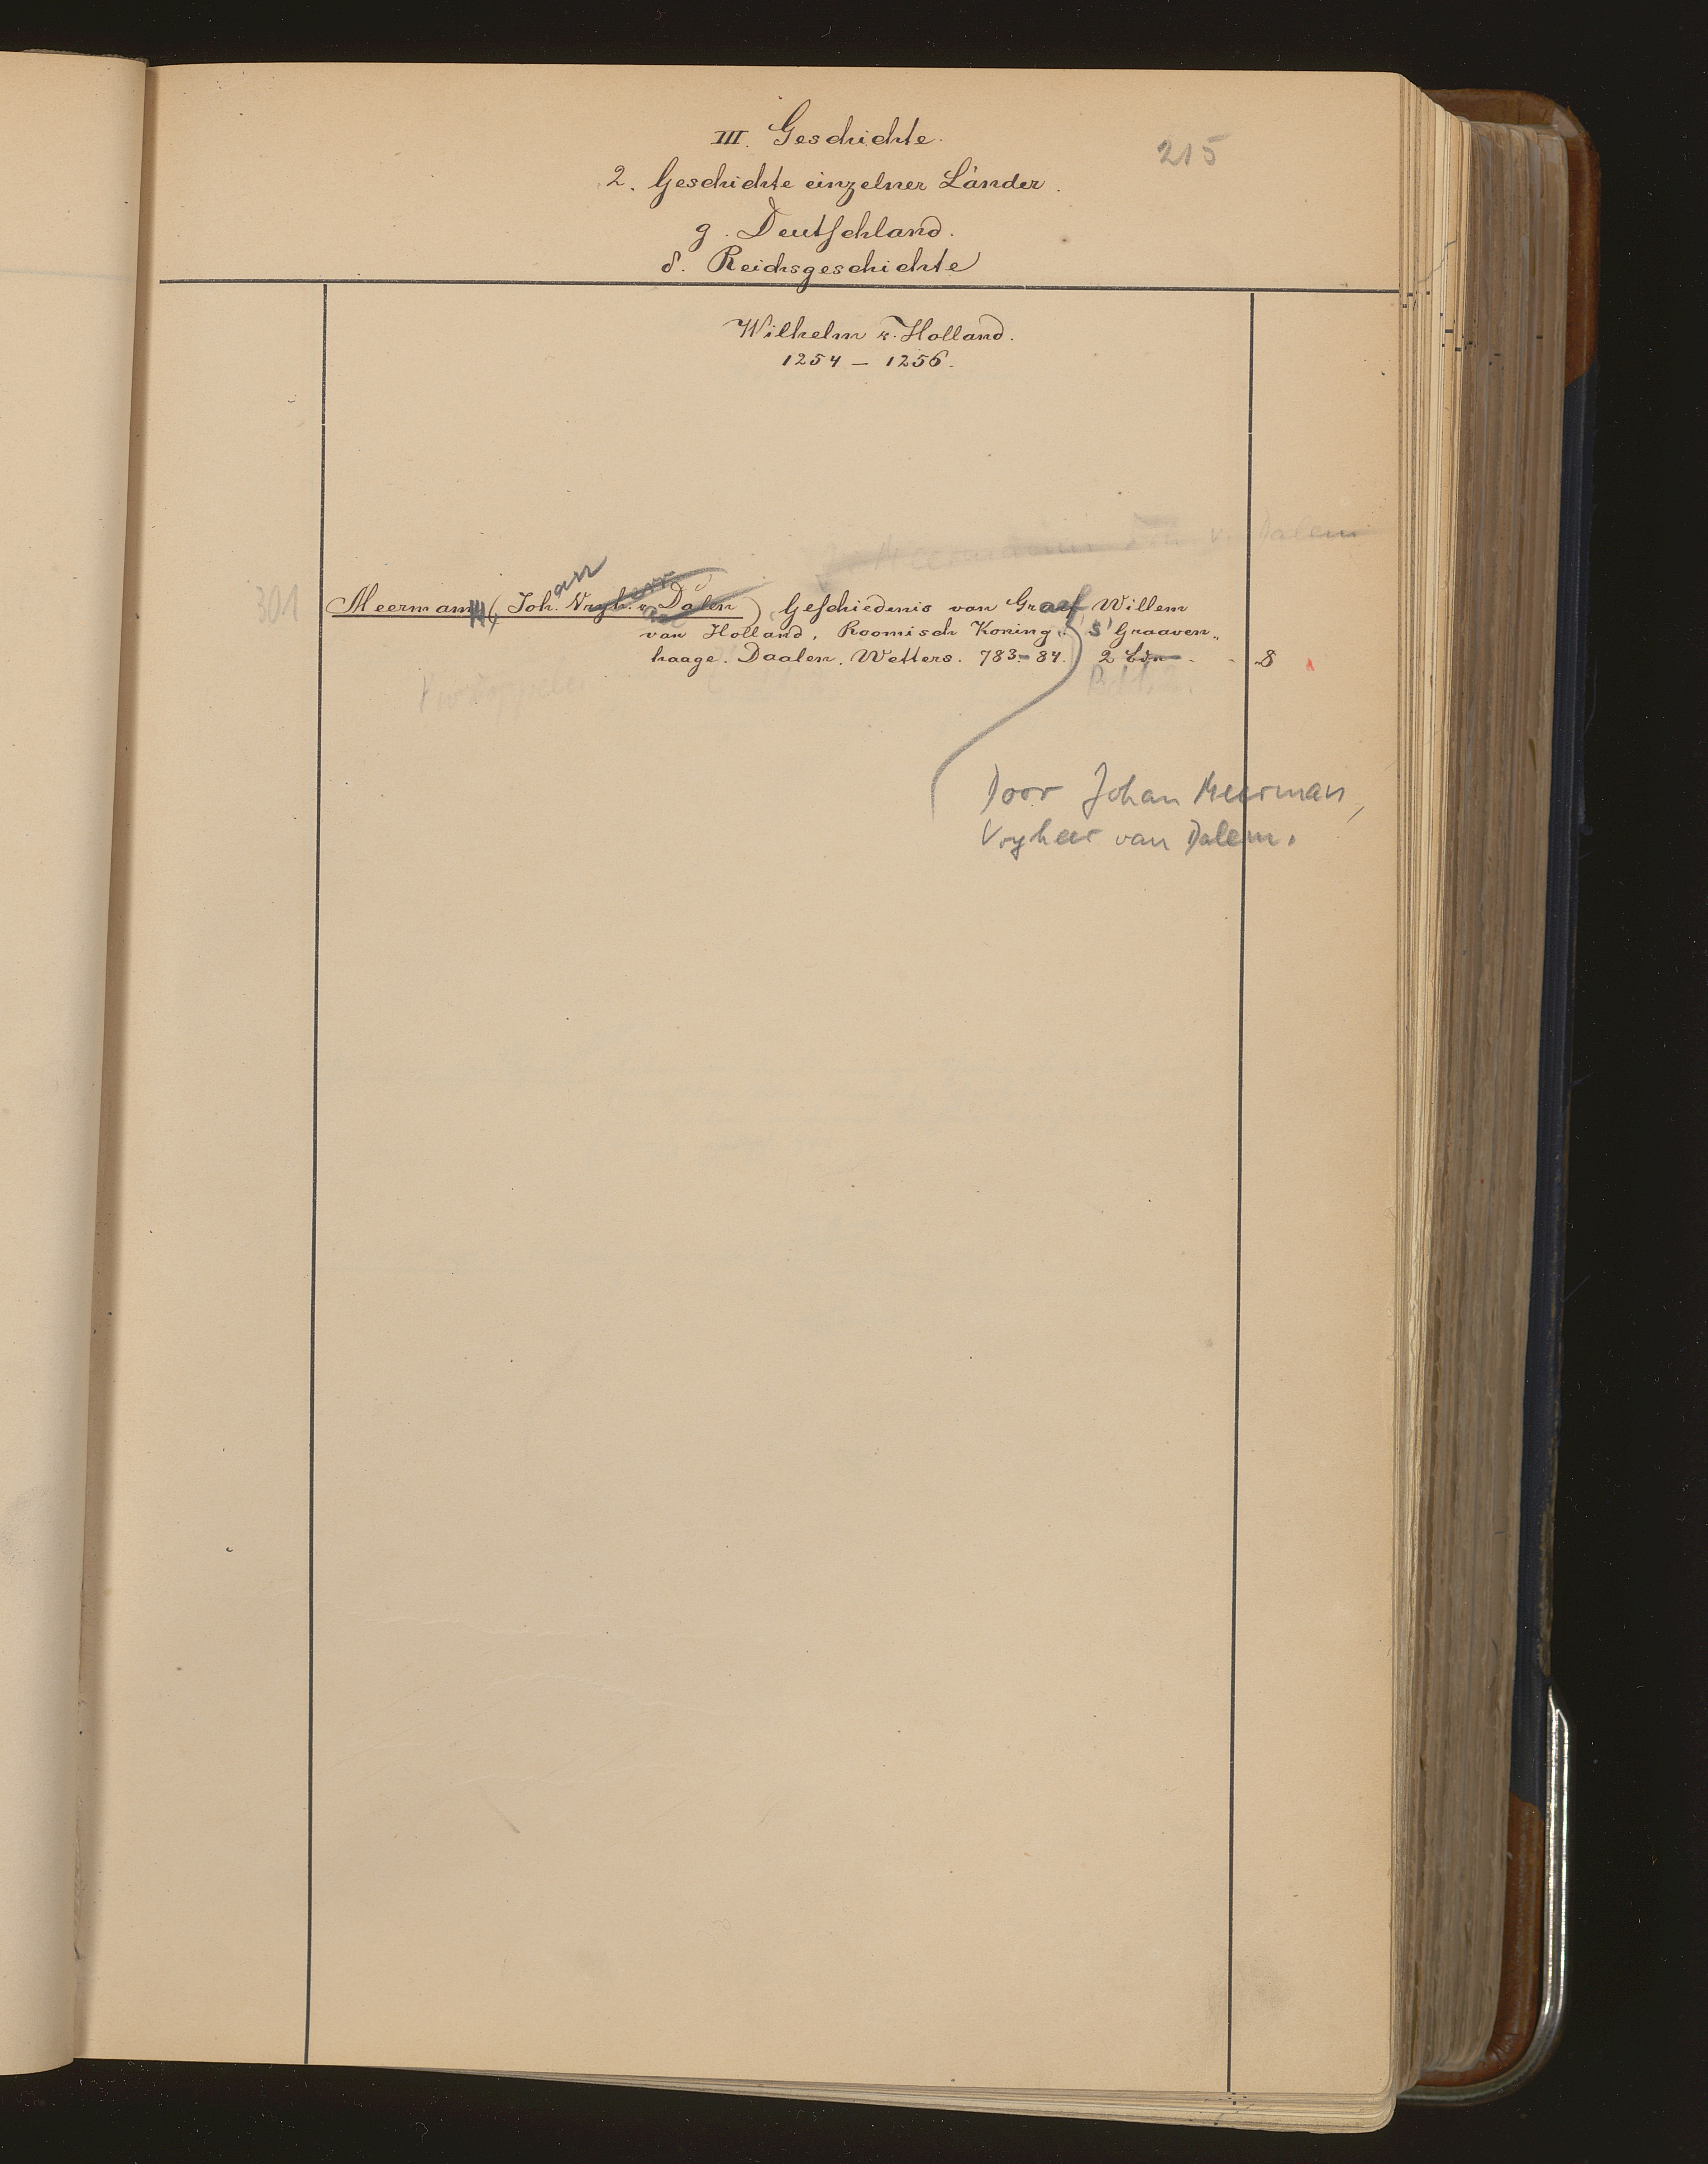 III. Geschichte.
215
2. Geschichte einzelner Länder.
g. Deutschland.
δ. Reichsgeschichte
Wilhelm v. Holland.
1254 – 1256.
v. Dalem
an
301 Meerman (Joh. Vryh. v. Dalen) Geschiedenis van Graaf Willem
van Holland, Roomisch Koning. s' Graaven„
haage. Daalen, Wetters. 783–84. 2 Bdn 8
Door Johan Meerman,
Vryheer van Dalem.